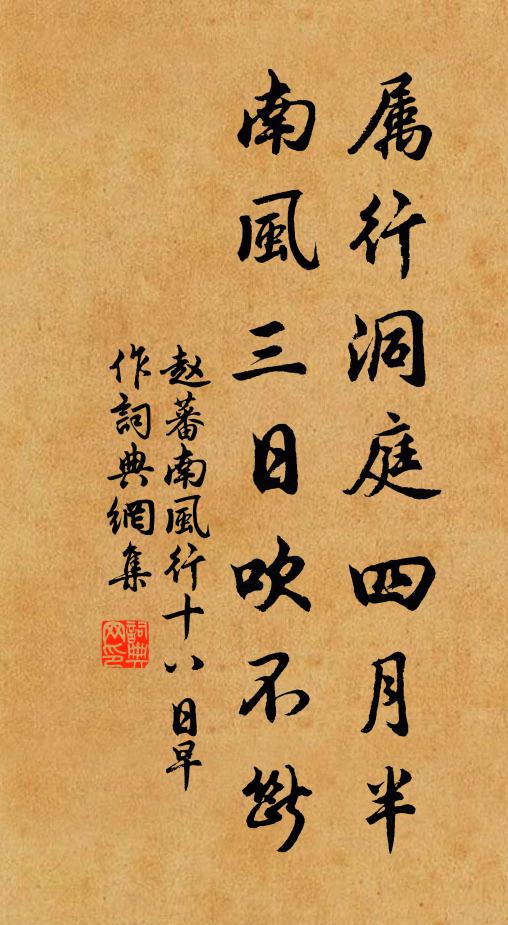 属行洞庭四月半
南風三日吹不斷
赵蕃南風行十八日早
作詞典網集
詞典
网印